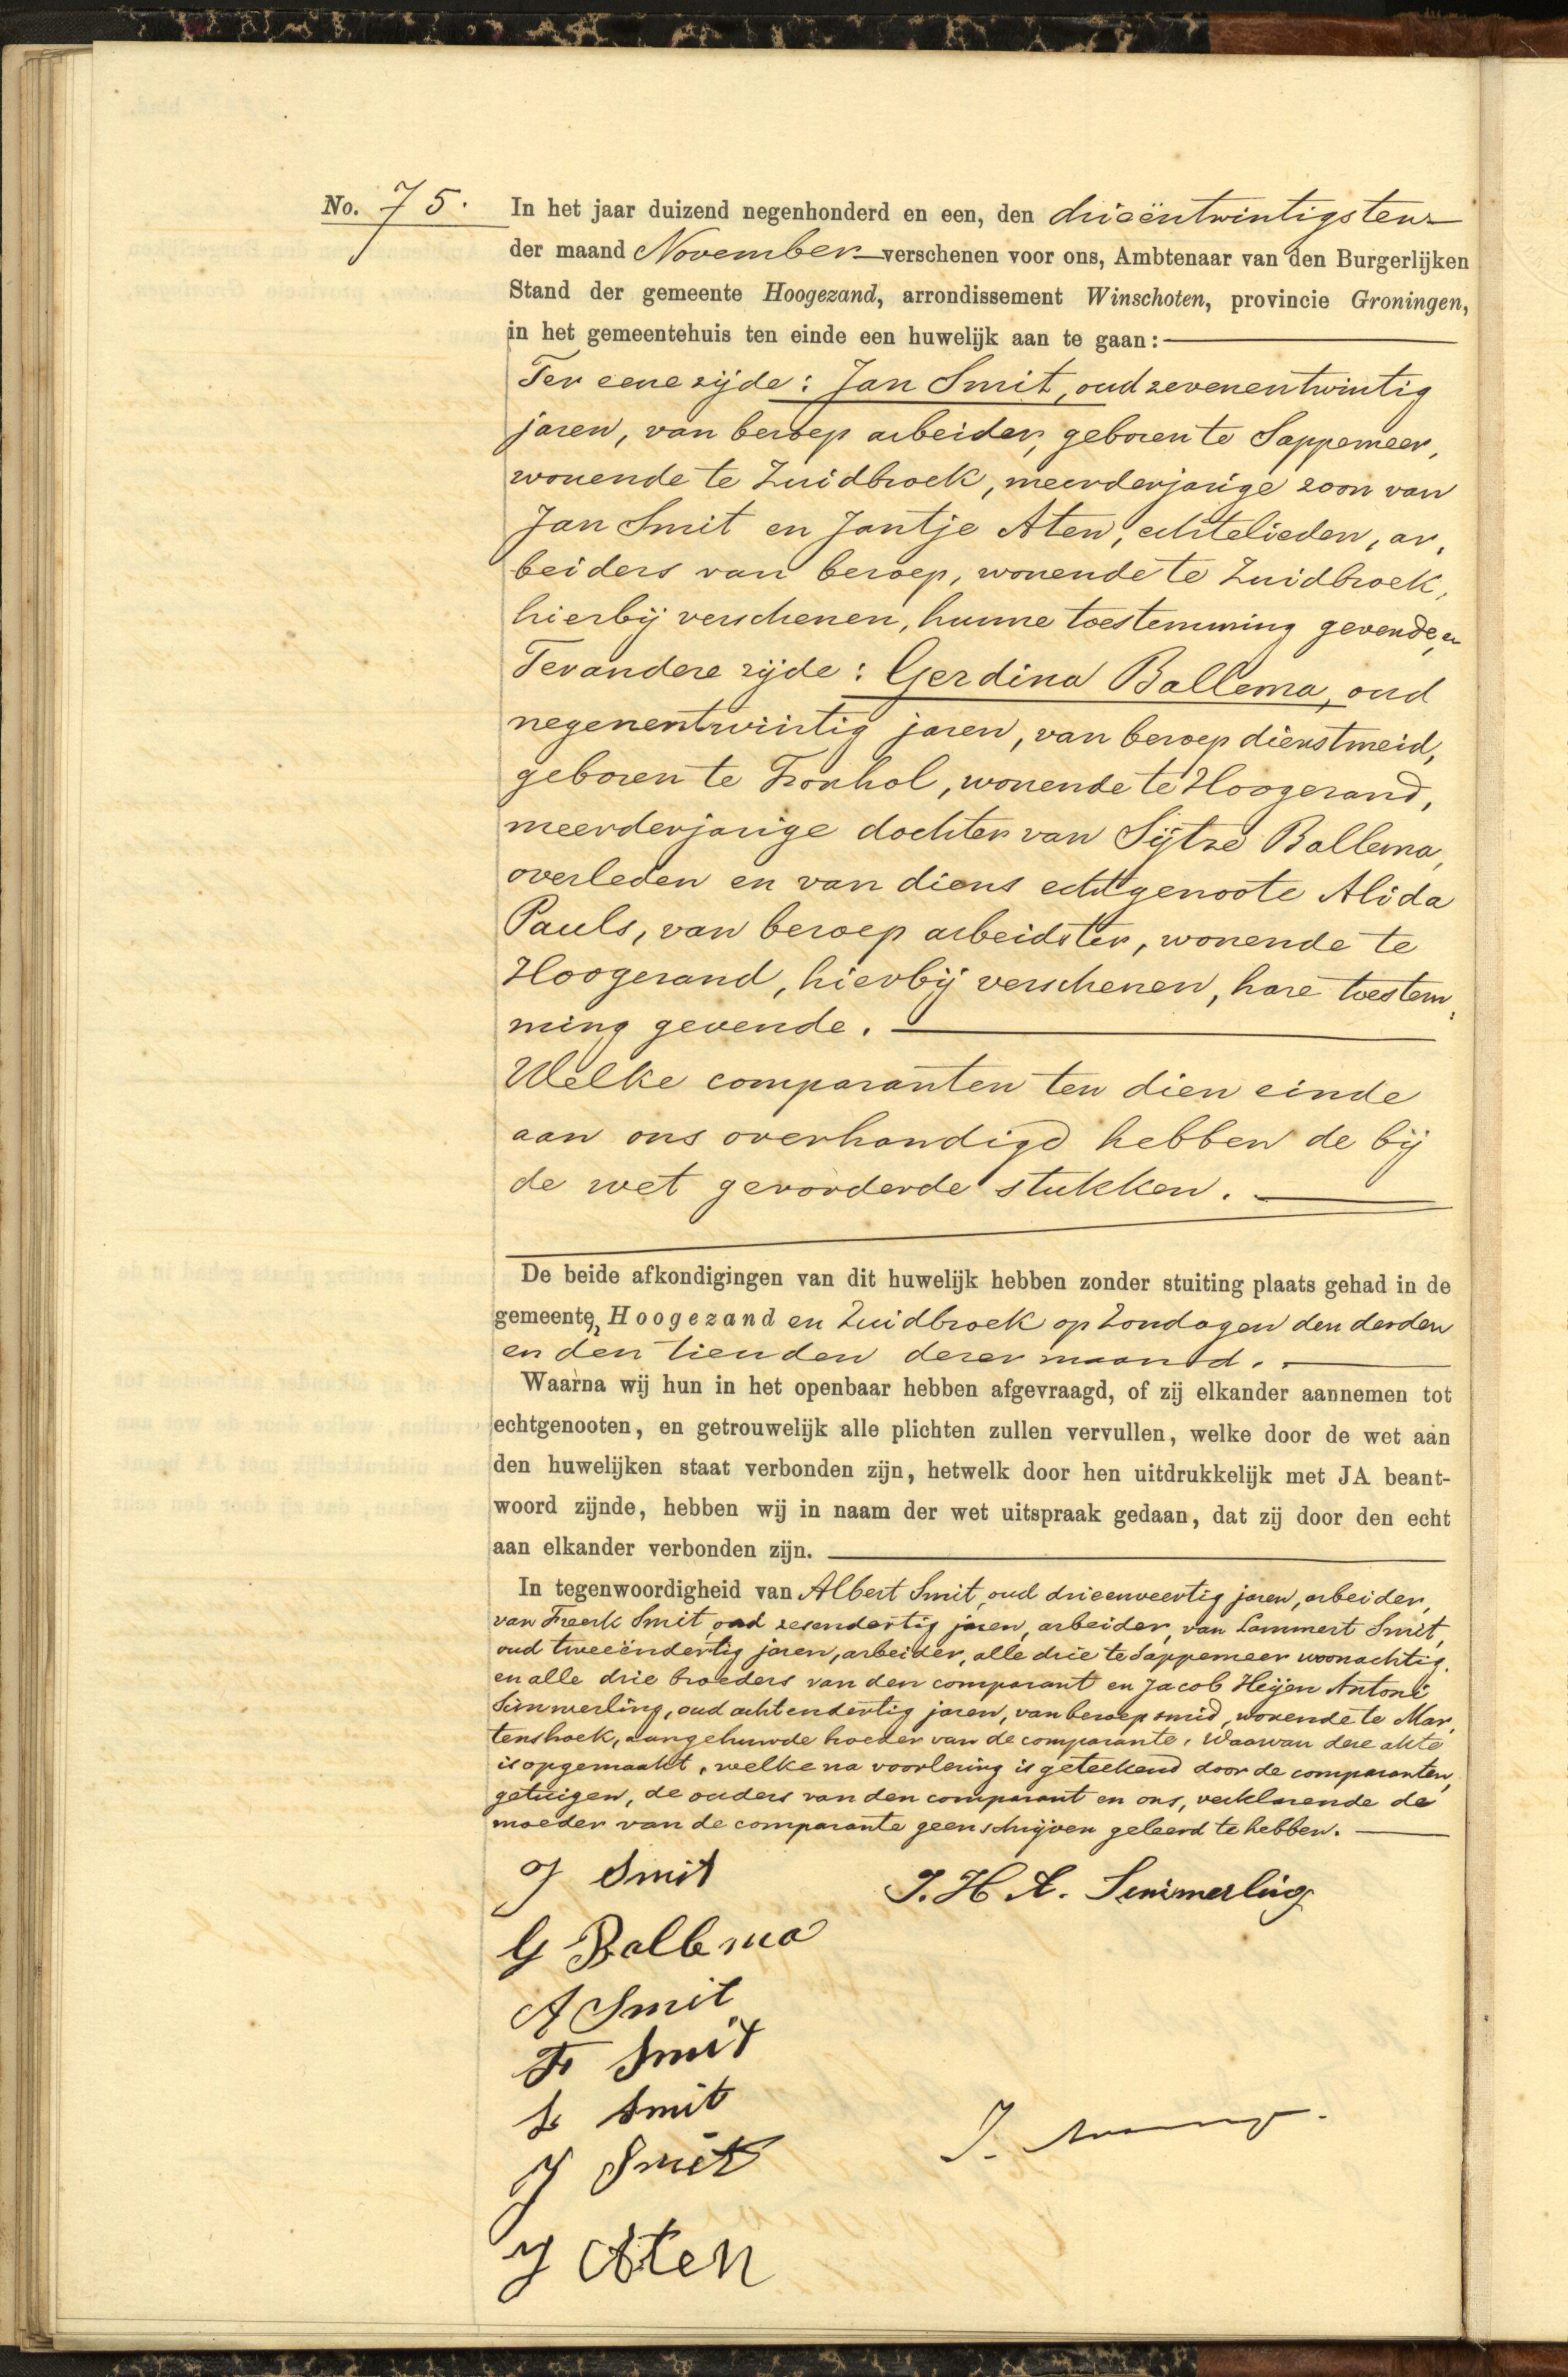 No. 75.
In het jaar duizend negenhonderd en een, den drieëntwintigsten
der maand November verschenen voor ons, Ambtenaar van den Burgerlijken
Stand der gemeente Hoogezand, arrondissement Winschoten, provincie Groningen,
in het gemeentehuis ten einde een huwelijk aan te gaan:
Ter eene zijde: Jan Smit, oud zevenentwintig
jaren, van beroep arbeider, geboren te Sappemeer,
wonende te Zuidbroek, meerderjarige zoon van
Jan Smit en Jantje Aten, echtelieden, ar,
beiders van beroep, wonende te Zuidbroek,
hierbij verschenen, hunne toestemming gevende, en
Ter andere zijde: Gerdina Ballema, oud
negenentwintig jaren, van beroep dienstmeid,
geboren te Fronhol, wonende te Hoogezand,
meerderjarige dochter van Sijtze Ballema,
overleden en van diens echtgenoote Alida
Pauls, van beroep arbeidster, wonende te
Hoogezand, hierbij verschenen, hare toestem,
ming gevende.
Welke comparanten ten dien einde
aan ons overhandigd hebben de bij
de wet gevorderde stukken.
De beide afkondigingen van dit huwelijk hebben zonder stuiting plaats gehad in de
gemeenten Hoogezand en Zuidbroek op Zondagen den derden
en den tienden dezer maand.
Waarna wij hun in het openbaar hebben afgevraagd, of zij elkander aannemen tot
echtgenooten, en getrouwelijk alle plichten zullen vervullen, welke door de wet aan
den huwelijken staat verbonden zijn, hetwelk door hen uitdrukkelijk met JA beant-
woord zijnde, hebben wij in naam der wet uitspraak gedaan, dat zij door den echt
aan elkander verbonden zijn.
In tegenwoordigheid van Albert Smit, oud drieenveertig jaren, arbeider,
van Freerk Smit, oud zesendertig jaren, arbeider, van Lammert Smit,
oud tweeëndertig jaren, arbeider, alle drie te Sappemeer woonachtig,
en alle drie broeders van den comparant en Jacob Heijen Antoni
Simmerling, oud achtendertig jaren, van beroep smid, wonende te Mar,
tenshoek, aangehuwde broeder van de comparante. Waarvan deze akte
is opgemaakt, welke na voorlezing is geteekend door de comparanten,
getuigen, de ouders van den comparant en ons, verklarende de
moeder van de comparante geen schrijven geleerd te hebben.
J Smit
J. H A. Simmerling
G Ballema
A Smit
F Smit
L Smit
J Smit
J Aten